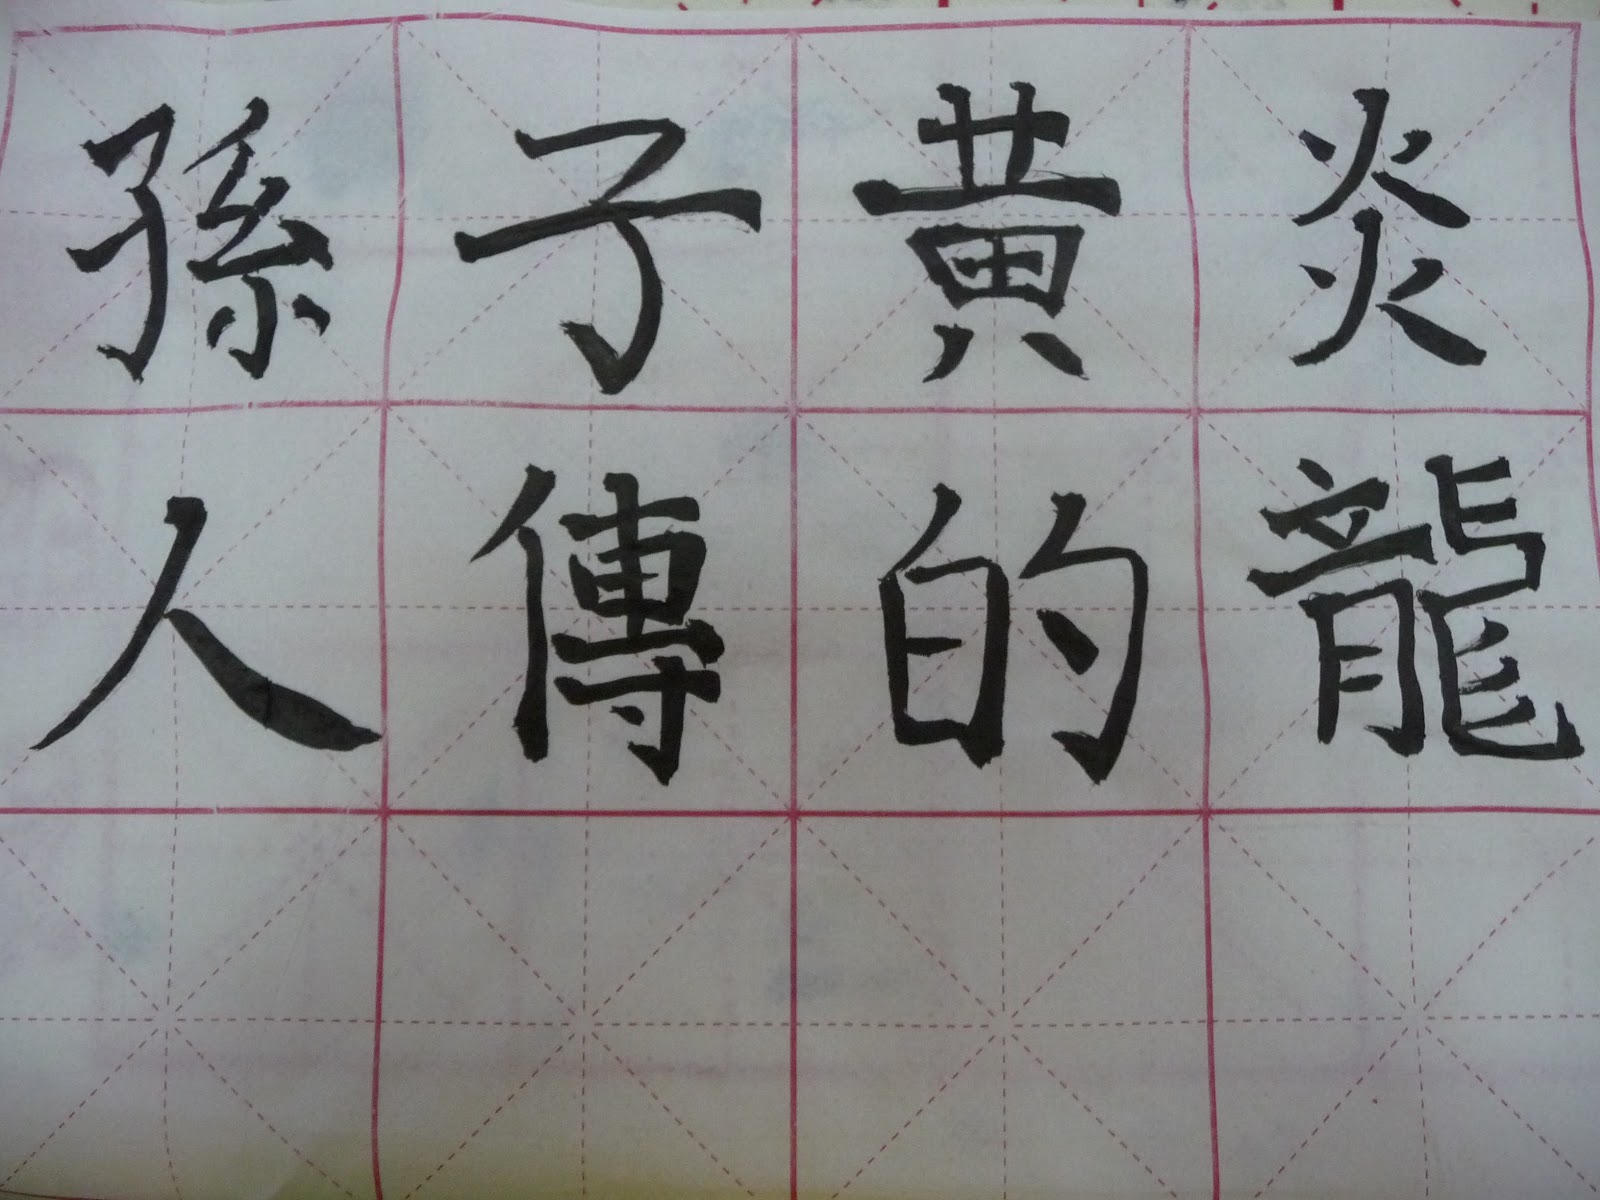 炎黃子孫
龍的傳人